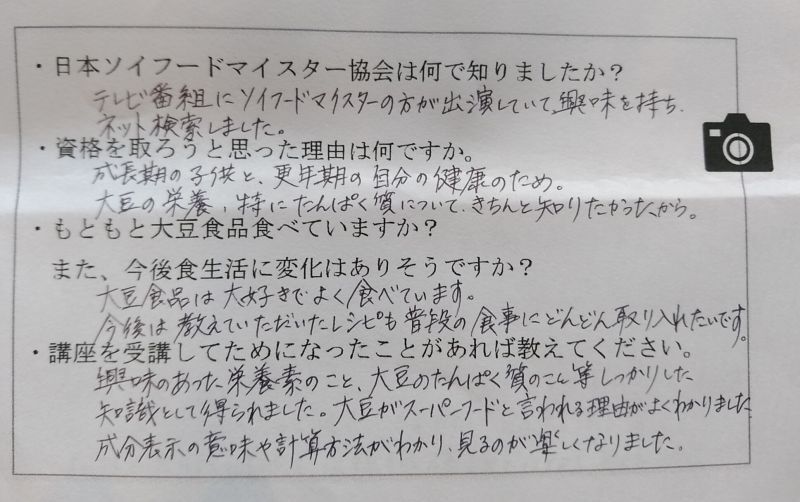 ・日本ソイフードマイスター協会は何で知りましたか？
テレビ番組にソイフードマイスターの方が出演していて興味を持ち、
ネット検索しました。
・資格を取ろうと思った理由は何ですか。
成長期の子供と、更年期の自分の健康のため。
大豆の栄養、特にたんぱく質について、きちんと知りたかったから。
・もともと大豆食品食べていますか？
また、今後食生活に変化はありそうですか？
大豆食品は大好きでよく食べています。
今後は教えていただいたレシピも普段の食事にどんどん取り入れたいです。
・講座を受講してためになったことがあれば教えてください。
興味のあった栄養素のこと、大豆のたんぱく質のこと等しっかりした
知識として得られました。大豆がスーパーフードと言われる理由がよくわかりました
成分表示の意味や計算方法がわかり、見るのが楽しくなりました。